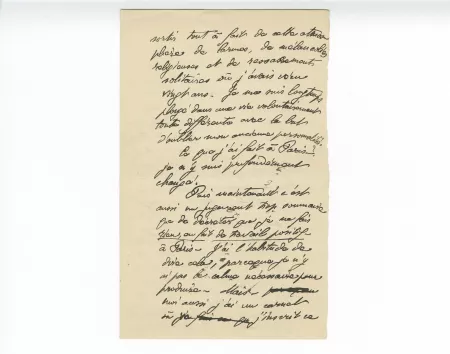 sortir tout à fait de cette atmos
phère de larmes, de mélancolies
religieuses et de ressassements
solitaires où j'avais vécu
vingt ans. Je me suis longtemps
plongé dans une vie volontairement
toute différente avec le but
d'oublier mon ancienne personnalité.
Ce que j'ai fait à Paris?
je m'y suis profondément
changé.
Puis maintenant c'est
aussi un jugement trop sommaire
que de décréter que je ne fais
rien, en fait de travail positif
à Paris. J'ai l'habitude de
dire cela, "parce que je n'y
ai pas le calme nécessaire pour
produire. Mais
moi aussi j'ai un carnet
où j'inscris ce